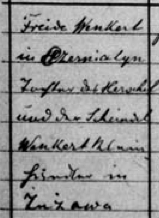 Freide Wenkert
in Czernialyn
Tochter des Herschel
und der Scheindel
Wenkert Klein
händler in
Zużawa